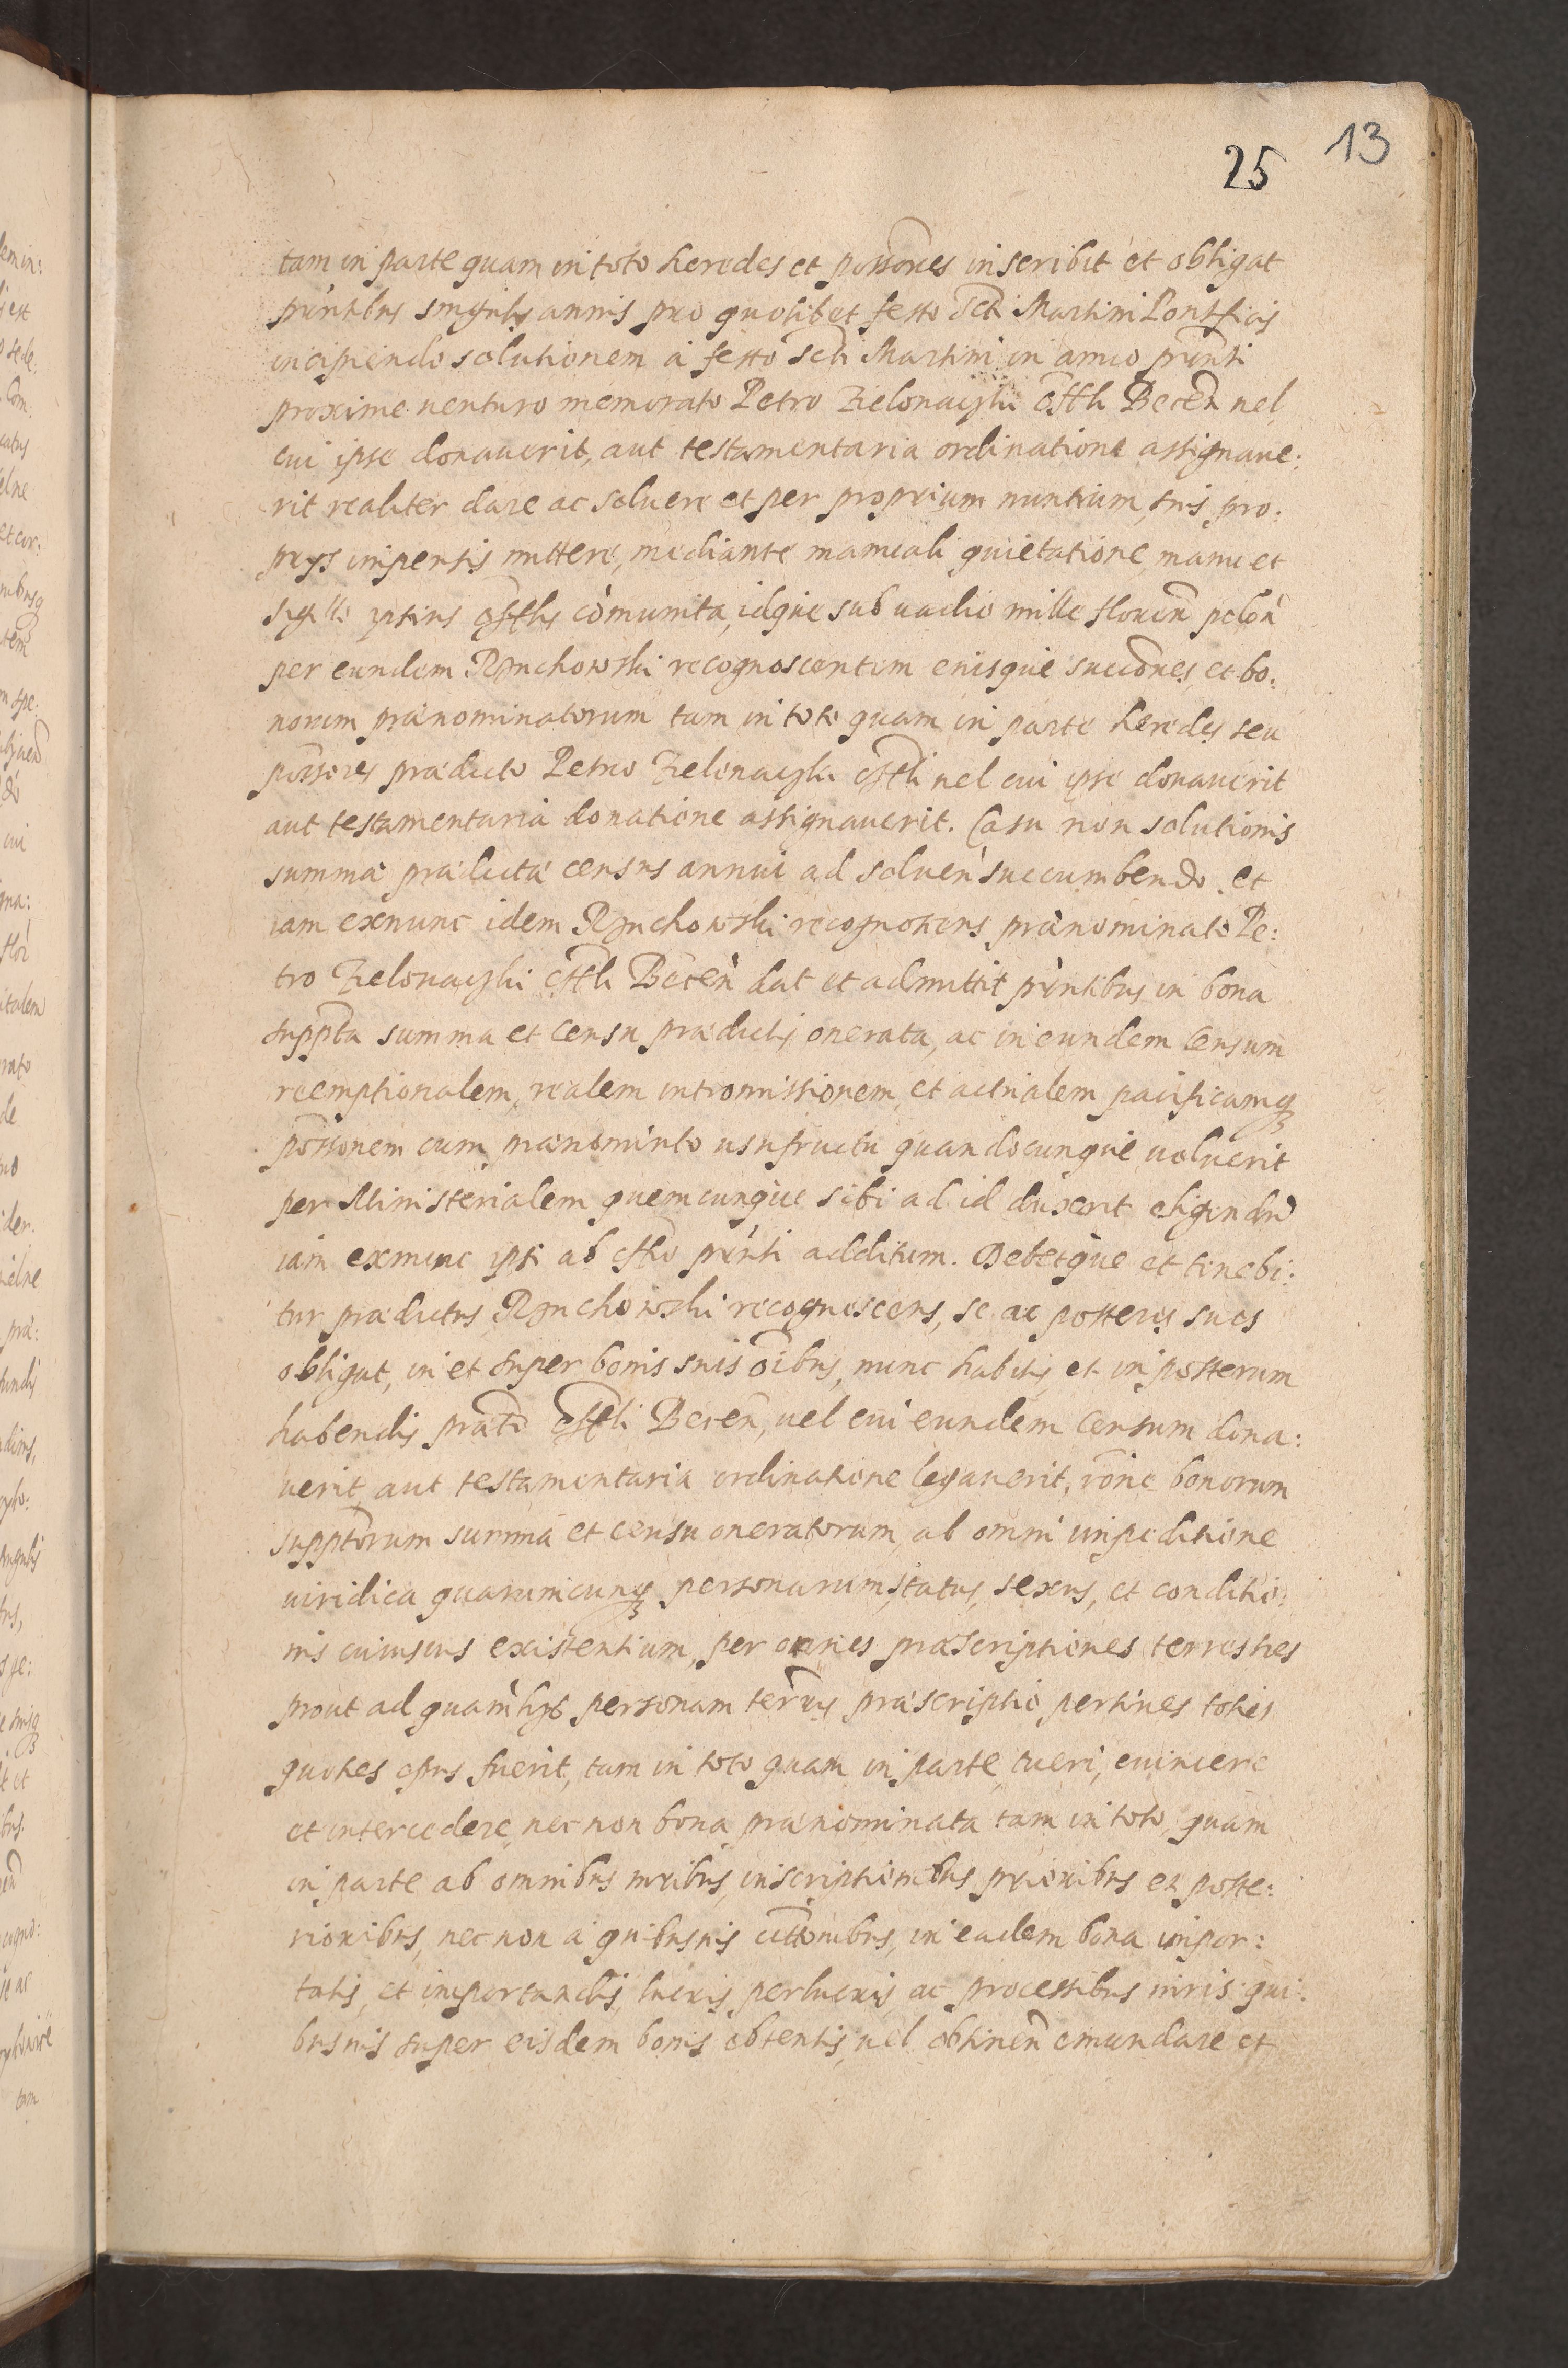 13
25
tam in parte quam in toto heredes et possores inscribit et obligat
pñtibus singulis annis pro quolibet festo Scti Martini Pontificis
incipiendo solutionem a festo Scti Martini in anno pñti
proxime venturo memorato Petro Zielonacyski Offli Becen̄ vel
cui ipse donauerit, aut testamentaria ordinatione assignaue:
rit realiter dare ac soluere et per proprium nuntium, suis pro:
prijs impensis mittere, mediante manuali quietatione, manu et
sigillo ipsius Offlis cōmunita, idque sub vadio mille floren̄ polon̄
per eundem Rynchowski recognoscentem eiusque succōres, et bo:
norum prænominatorum tam in toto quam in parte heredes seu
possores prædicto Petro Zielonacyski Offli vel cui ipse donauerit
aut testamentaria donatione assignauerit. Casu non solutionis
summa prædicta census annui ad soluen̄ succumbendo. et
iam exnunc idem Rynchowski recognoscens prænominato Pe:
tro Zielonacyski Offli Becen̄ dat et admittit pñtibus in bona
supp̄ta summa et censu prædictis onerata, ac in eundem censum
reemptionalem, realem intromissionem, et actualem pacificamq
possonem cum prænominto usufructu quandocunque voluerit
per Ministerialem quemcunque sibi ad id duxerit eligendū
iam exnunc ipsi ab offō pñti additum. Debetque et tenebi:
tur prædictus Rynchowski recognoscens, se ac posteros suos
obligat, in et super bonis suis oībus, nunc habitis, et in posterum
habendis præfato Offli Becen̄, vel cui eundem censum dona:
uerit, aut testamentaria ordinatione legauerit, rōne bonorum
supptorum summa et censu oneratorum, ab omni impeditione
iuridica quarumcunq personarum, status, sexus, et conditio:
nis cuiusuis existentium, per omnes præscriptiones terrestres
prout ad quamlibet personam terris præscriptio pertines toties
quoties opus fuerit, tam in toto quam in parte, tueri, euincere
et intercedere, nec non bona prænominata tam in toto, quam
in parte ab omnibus iuribus, inscriptionibus prioribus et poste:
rioribus, nec non a quibusuis cittōnibus, in eadem bona impor:
tatis, et importandis, lucris perlucris, ac processibus iuris qui:
busuis super eisdem bonis obtentis, vel obtinen̄ emundare et